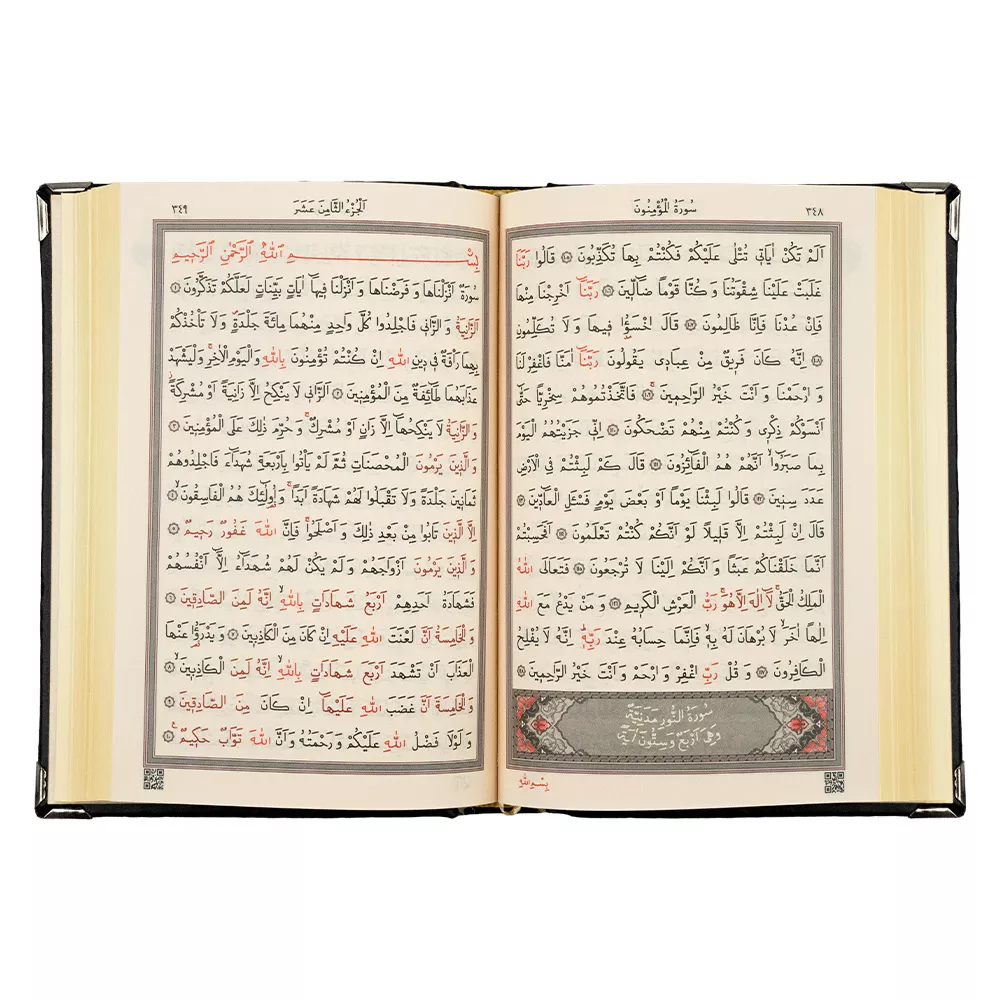 سُورَةُ الْمُؤْمِنُونَ ٣٤٨
اَلَمْ تَكُنْ اٰيَاتٖي تُتْلٰى عَلَيْكُمْ فَكُنْتُمْ بِهَا تُكَذِّبُونَ ۝١٠٥ قَالُوا رَبَّنَا
غَلَبَتْ عَلَيْنَا شِقْوَتُنَا وَكُنَّا قَوْمًا ضَٓالّٖينَ ۝١٠٦ رَبَّنَٓا اَخْرِجْنَا مِنْهَا
فَاِنْ عُدْنَا فَاِنَّا ظَالِمُونَ ۝١٠٧ قَالَ اخْسَؤُ۫ا فٖيهَا وَلَا تُكَلِّمُونِ
۝١٠٨ اِنَّهُ كَانَ فَرٖيقٌ مِنْ عِبَادٖي يَقُولُونَ رَبَّنَٓا اٰمَنَّا فَاغْفِرْ لَنَا
وَارْحَمْنَا وَاَنْتَ خَيْرُ الرَّاحِمٖينَ ۝١٠٩ فَاتَّخَذْتُمُوهُمْ سِخْرِيًّا حَتّٰٓى
اَنْسَوْكُمْ ذِكْرٖي وَكُنْتُمْ مِنْهُمْ تَضْحَكُونَ ۝١١٠ اِنّٖي جَزَيْتُهُمُ الْيَوْمَ
بِمَا صَبَرُٓوا اَنَّهُمْ هُمُ الْفَٓائِزُونَ ۝١١١ قَالَ كَمْ لَبِثْتُمْ فِي الْاَرْضِ
عَدَدَ سِنٖينَ ۝١١٢ قَالُوا لَبِثْنَا يَوْمًا اَوْ بَعْضَ يَوْمٍ فَسْـَٔلِ الْعَٓادّٖينَ ۝١١٣
قَالَ اِنْ لَبِثْتُمْ اِلَّا قَلٖيلًا لَوْ اَنَّكُمْ كُنْتُمْ تَعْلَمُونَ ۝١١٤ اَفَحَسِبْتُمْ
اَنَّمَا خَلَقْنَاكُمْ عَبَثًا وَاَنَّكُمْ اِلَيْنَا لَا تُرْجَعُونَ ۝١١٥ فَتَعَالَى اللّٰهُ
الْمَلِكُ الْحَقُّۚ لَٓا اِلٰهَ اِلَّا هُوَۚ رَبُّ الْعَرْشِ الْكَرٖيمِ ۝١١٦ وَمَنْ يَدْعُ مَعَ اللّٰهِ
اِلٰهًا اٰخَرَۙ لَا بُرْهَانَ لَهُ بِهٖۙ فَاِنَّمَا حِسَابُهُ عِنْدَ رَبِّهٖؕ اِنَّهُ لَا يُفْلِحُ
الْكَافِرُونَ ۝١١٧ وَقُلْ رَبِّ اغْفِرْ وَارْحَمْ وَاَنْتَ خَيْرُ الرَّاحِمٖينَ ۝١١٨
سُورَةُ النُّورِ مَدَنِيَّةٌ
وَهِيَ اَرْبَعٌ وَسِتُّونَ اٰيَةً
بِسْمِ اللّٰهِ
٣٤٩ اَلْجُزْءُ الثَّامِنَ عَشَرَ
بِسْمِ اللّٰهِ الرَّحْمٰنِ الرَّحٖيمِ
سُورَةٌ اَنْزَلْنَاهَا وَفَرَضْنَاهَا وَاَنْزَلْنَا فٖيهَٓا اٰيَاتٍ بَيِّنَاتٍ لَعَلَّكُمْ تَذَكَّرُونَ ۝١
اَلزَّانِيَةُ وَالزَّانٖي فَاجْلِدُوا كُلَّ وَاحِدٍ مِنْهُمَا مِائَةَ جَلْدَةٍ وَلَا تَأْخُذْكُمْ
بِهِمَا رَأْفَةٌ فٖي دٖينِ اللّٰهِ اِنْ كُنْتُمْ تُؤْمِنُونَ بِاللّٰهِ وَالْيَوْمِ الْاٰخِرِۚ وَلْيَشْهَدْ
عَذَابَهُمَا طَٓائِفَةٌ مِنَ الْمُؤْمِنٖينَ ۝٢ اَلزَّانٖي لَا يَنْكِحُ اِلَّا زَانِيَةً اَوْ مُشْرِكَةًؗ
وَالزَّانِيَةُ لَا يَنْكِحُهَٓا اِلَّا زَانٍ اَوْ مُشْرِكٌۚ وَحُرِّمَ ذٰلِكَ عَلَى الْمُؤْمِنٖينَ ۝٣
وَالَّذٖينَ يَرْمُونَ الْمُحْصَنَاتِ ثُمَّ لَمْ يَأْتُوا بِاَرْبَعَةِ شُهَدَٓاءَ فَاجْلِدُوهُمْ
ثَمَانٖينَ جَلْدَةً وَلَا تَقْبَلُوا لَهُمْ شَهَادَةً اَبَدًاۚ وَاُو۬لٰٓئِكَ هُمُ الْفَاسِقُونَ ۝٤
اِلَّا الَّذٖينَ تَابُوا مِنْ بَعْدِ ذٰلِكَ وَاَصْلَحُواۚ فَاِنَّ اللّٰهَ غَفُورٌ رَحٖيمٌ ۝٥
وَالَّذٖينَ يَرْمُونَ اَزْوَاجَهُمْ وَلَمْ يَكُنْ لَهُمْ شُهَدَٓاءُ اِلَّٓا اَنْفُسُهُمْ
فَشَهَادَةُ اَحَدِهِمْ اَرْبَعُ شَهَادَاتٍ بِاللّٰهِۙ اِنَّهُ لَمِنَ الصَّادِقٖينَ ۝٦
وَالْخَامِسَةُ اَنَّ لَعْنَتَ اللّٰهِ عَلَيْهِ اِنْ كَانَ مِنَ الْكَاذِبٖينَ ۝٧ وَيَدْرَؤُ۬ا عَنْهَا
الْعَذَابَ اَنْ تَشْهَدَ اَرْبَعَ شَهَادَاتٍ بِاللّٰهِۙ اِنَّهُ لَمِنَ الْكَاذِبٖينَۙ ۝٨
وَالْخَامِسَةَ اَنَّ غَضَبَ اللّٰهِ عَلَيْهَٓا اِنْ كَانَ مِنَ الصَّادِقٖينَ ۝٩
وَلَوْلَا فَضْلُ اللّٰهِ عَلَيْكُمْ وَرَحْمَتُهُ وَاَنَّ اللّٰهَ تَوَّابٌ حَكٖيمٌ۟ ۝١٠